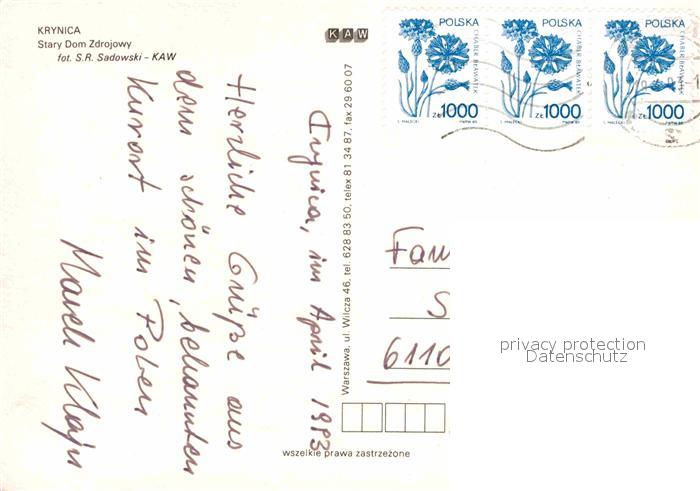 KRYNICA
Stary Dom Zdrojowy
fot. S.R. Sadowski – KAW
KAW
Warszawa, ul. Wilcza 46, tel. 628 83 50, telex 81 34 87, fax 29 60 07
wszelkie prawa zastrzeżone
POLSKA
CHABER BŁAWATEK
ZŁ 1000
POLSKA
CHABER BŁAWATEK
ZŁ 1000
POLSKA
CHABER BŁAWATEK
ZŁ 1000
Krynica, im April 1993
Herzliche Grüße aus
dem schönen, bekannten
Kurort im Polen
Marek Klajn
Fam
S
6110
privacy protection
Datenschutz